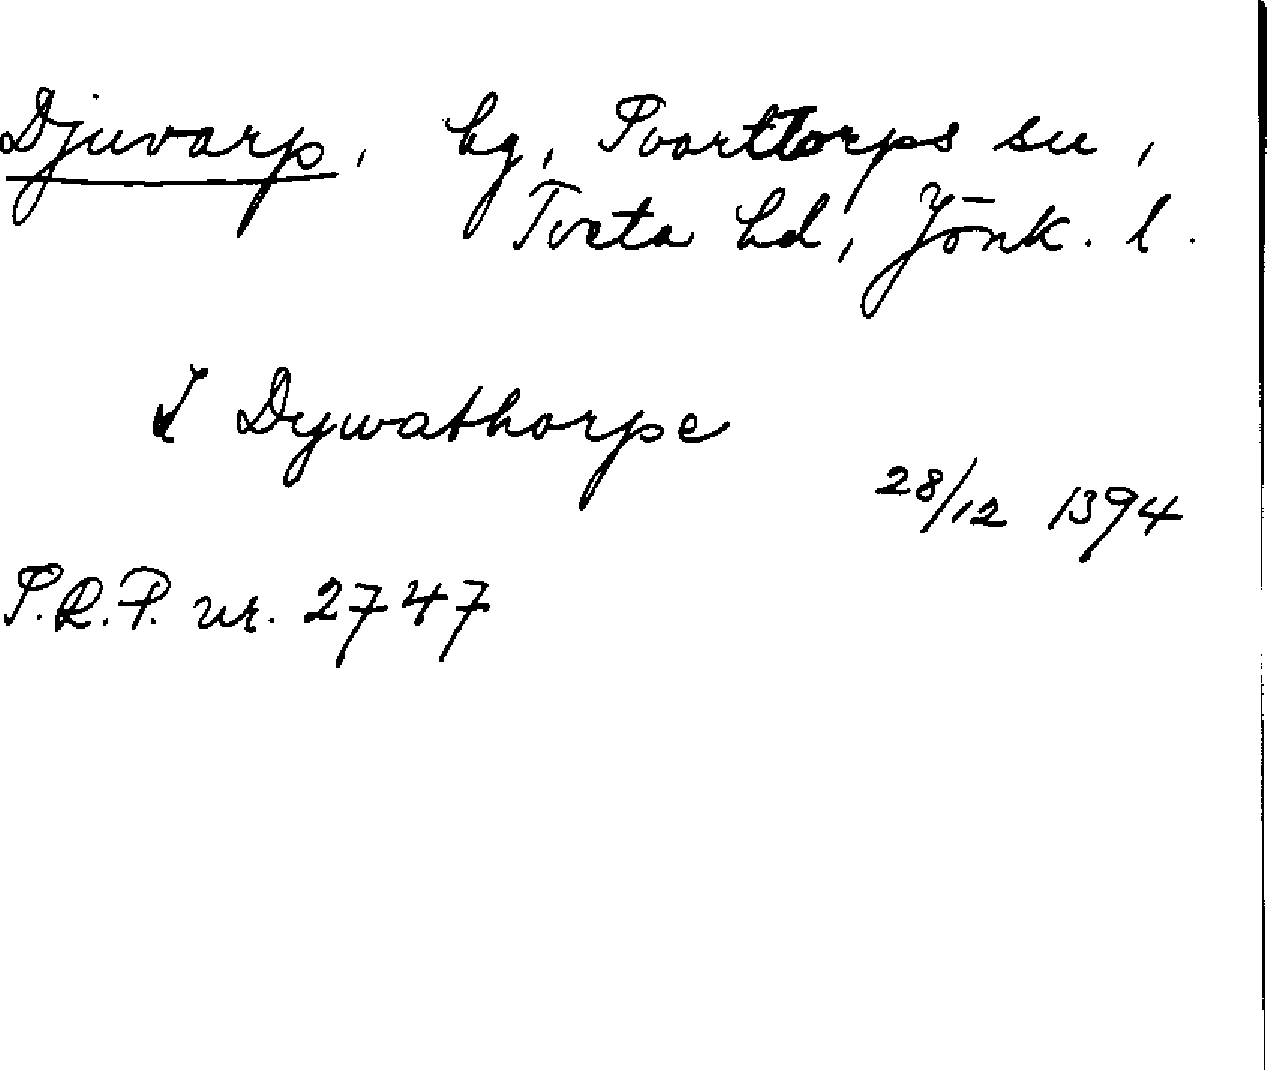 Djuvarp, hg, Svarttorps sn,
Tveta hd, Jönk. l.
I Dywathorpe
28/12 1394
S.R.P. nr. 2747